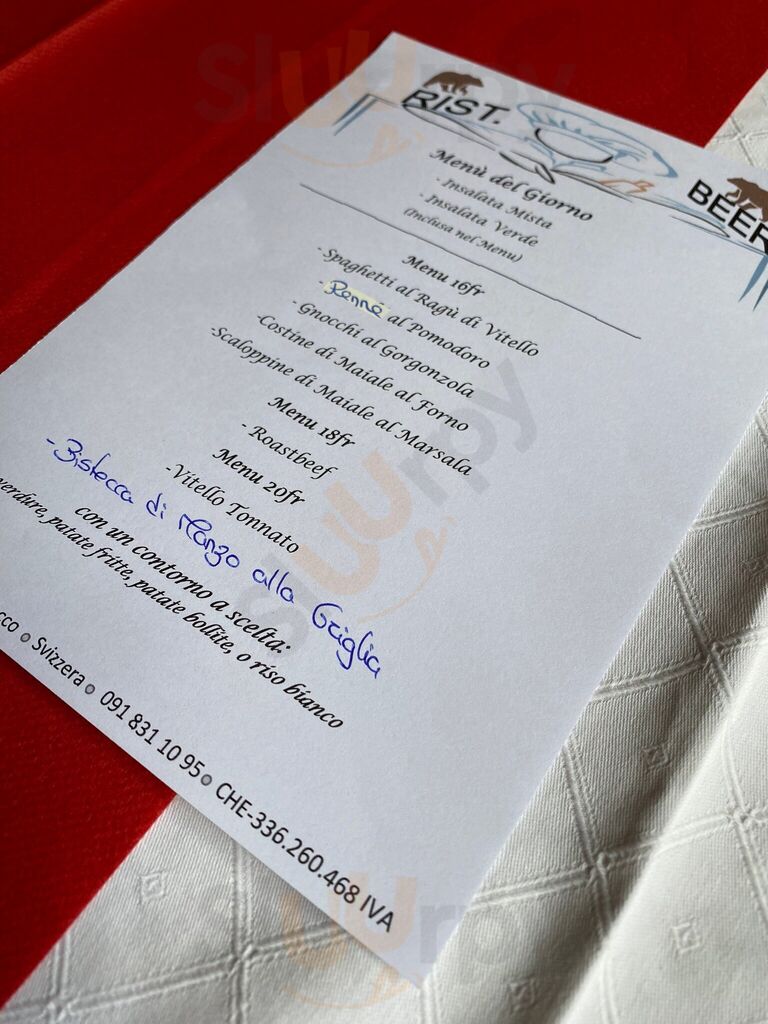 RIST.
BEER
Menù del Giorno
- Insalata Mista
- Insalata Verde
(Inclusa nel Menu)
Menu 16fr
-Spaghetti al Ragù di Vitello
-Penne al Pomodoro
- Gnocchi al Gorgonzola
-Costine di Maiale al Forno
-Scaloppine di Maiale al Marsala
Menu 18fr
- Roastbeef
Menu 20fr
-Vitello Tonnato
-Bistecca di Manzo alla Griglia
con un contorno a scelta:
verdure, patate fritte, patate bollite, o riso bianco
Svizzera 091 831 10 95 CHE-336.260.468 IVA
sluurpy
sluurpy
sluurpy